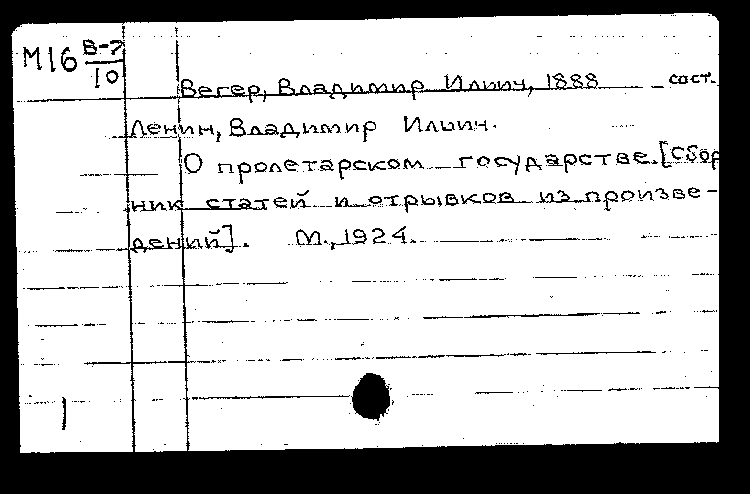 М16 В-7/10
Вегер, Владимир Ильич, 1888 сост.
Ленин, Владимир Ильич.
О пролетарском государстве. [Сбор
ник статей и отрывков из произве-
дений]. М., 1924.